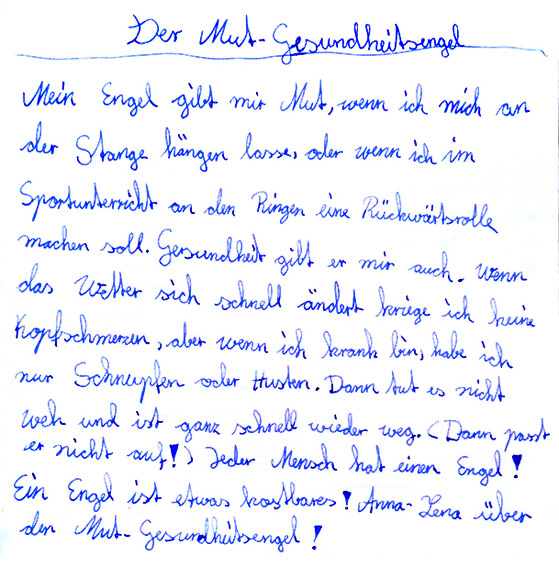 Der Mut-Gesundheitsengel
Mein Engel gibt mir Mut, wenn ich mich an
der Stange hängen lasse, oder wenn ich im
Sportunterricht an den Ringen eine Rückwärtsrolle
machen soll. Gesundheit gibt er mir auch. Wenn
das Wetter sich schnell ändert kriege ich keine
Kopfschmerzen, aber wenn ich krank bin, habe ich
nur Schnupfen oder Husten. Dann tut es nicht
weh und ist ganz schnell wieder weg. (Dann passt
er nicht auf!) Jeder Mensch hat einen Engel!
Ein Engel ist etwas kostbares! Anna-Lena über
den Mut-Gesundheitsengel!